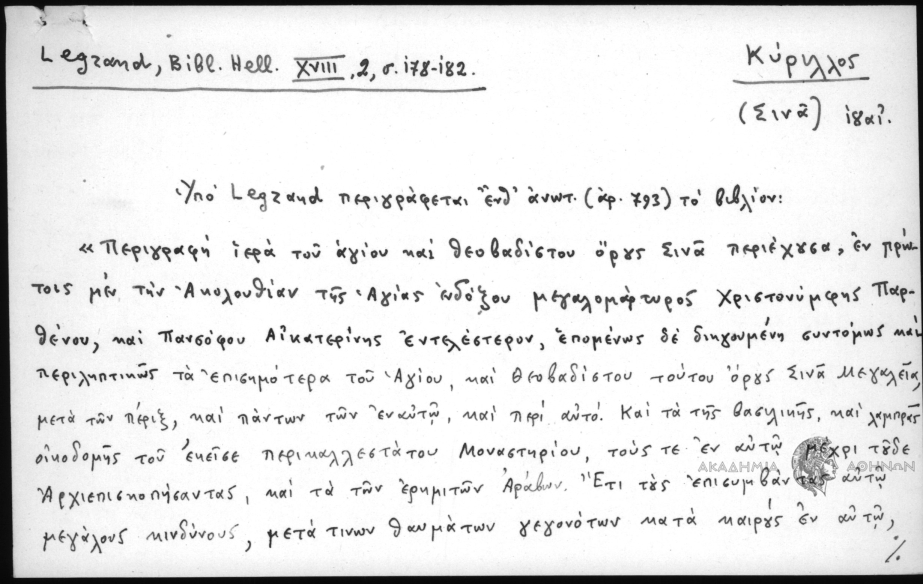 Legrand, Bibl. Hell. XVIII, 2, σ. 178-182.
Κύριλλος
(Σινᾶ) ιϛαʹ.
Ὑπό Legrand περιγράφεται ἔνθ' ἀνωτ. (ἀρ. 793) τό βιβλίον:
«Περιγραφή ἱερά τοῦ ἁγίου καί θεοβαδίστου ὄρȣς Σινᾶ περιέχȣσα, ἐν πρώ-
τοις μέν τήν Ἀκολουθίαν τῆς Ἁγίας ἐνδόξου μεγαλομάρτυρος Χριστονύμφης Παρ-
θένου, καί Πανσόφου Αἰκατερίνης ἐντελέστερον, ἑπομένως δέ διηγουμένη συντόμως καί
περιληπτικῶς τά ἐπισημότερα τοῦ Ἁγίου, καί θεοβαδίστου τούτου ὄρȣς Σινᾶ Μεγαλεῖα,
μετά τῶν πέριξ, καί πάντων τῶν ἐν αὐτῷ, καί περί αὐτό. Καί τά τῆς βασιλικῆς, καί λαμπρᾶς
οἰκοδομῆς τοῦ ἐκεῖσε περικαλλεστάτου Μοναστηρίου, τούς τε ἐν αὐτῷ μέχρι τȣ͂δε
Ἀρχιεπισκοπήσαντας, καί τά τῶν ἐρημιτῶν Ἀράβων. Ἔτι τȣ́ς ἐπισυμβάντας αὐτῷ
μεγάλους κινδύνους, μετά τινων θαυμάτων γεγονότων κατά καιρȣ́ς ἐν αὐτῷ,
./.
ΑΚΑΔΗΜΙΑ ΑΘΗΝΩΝ